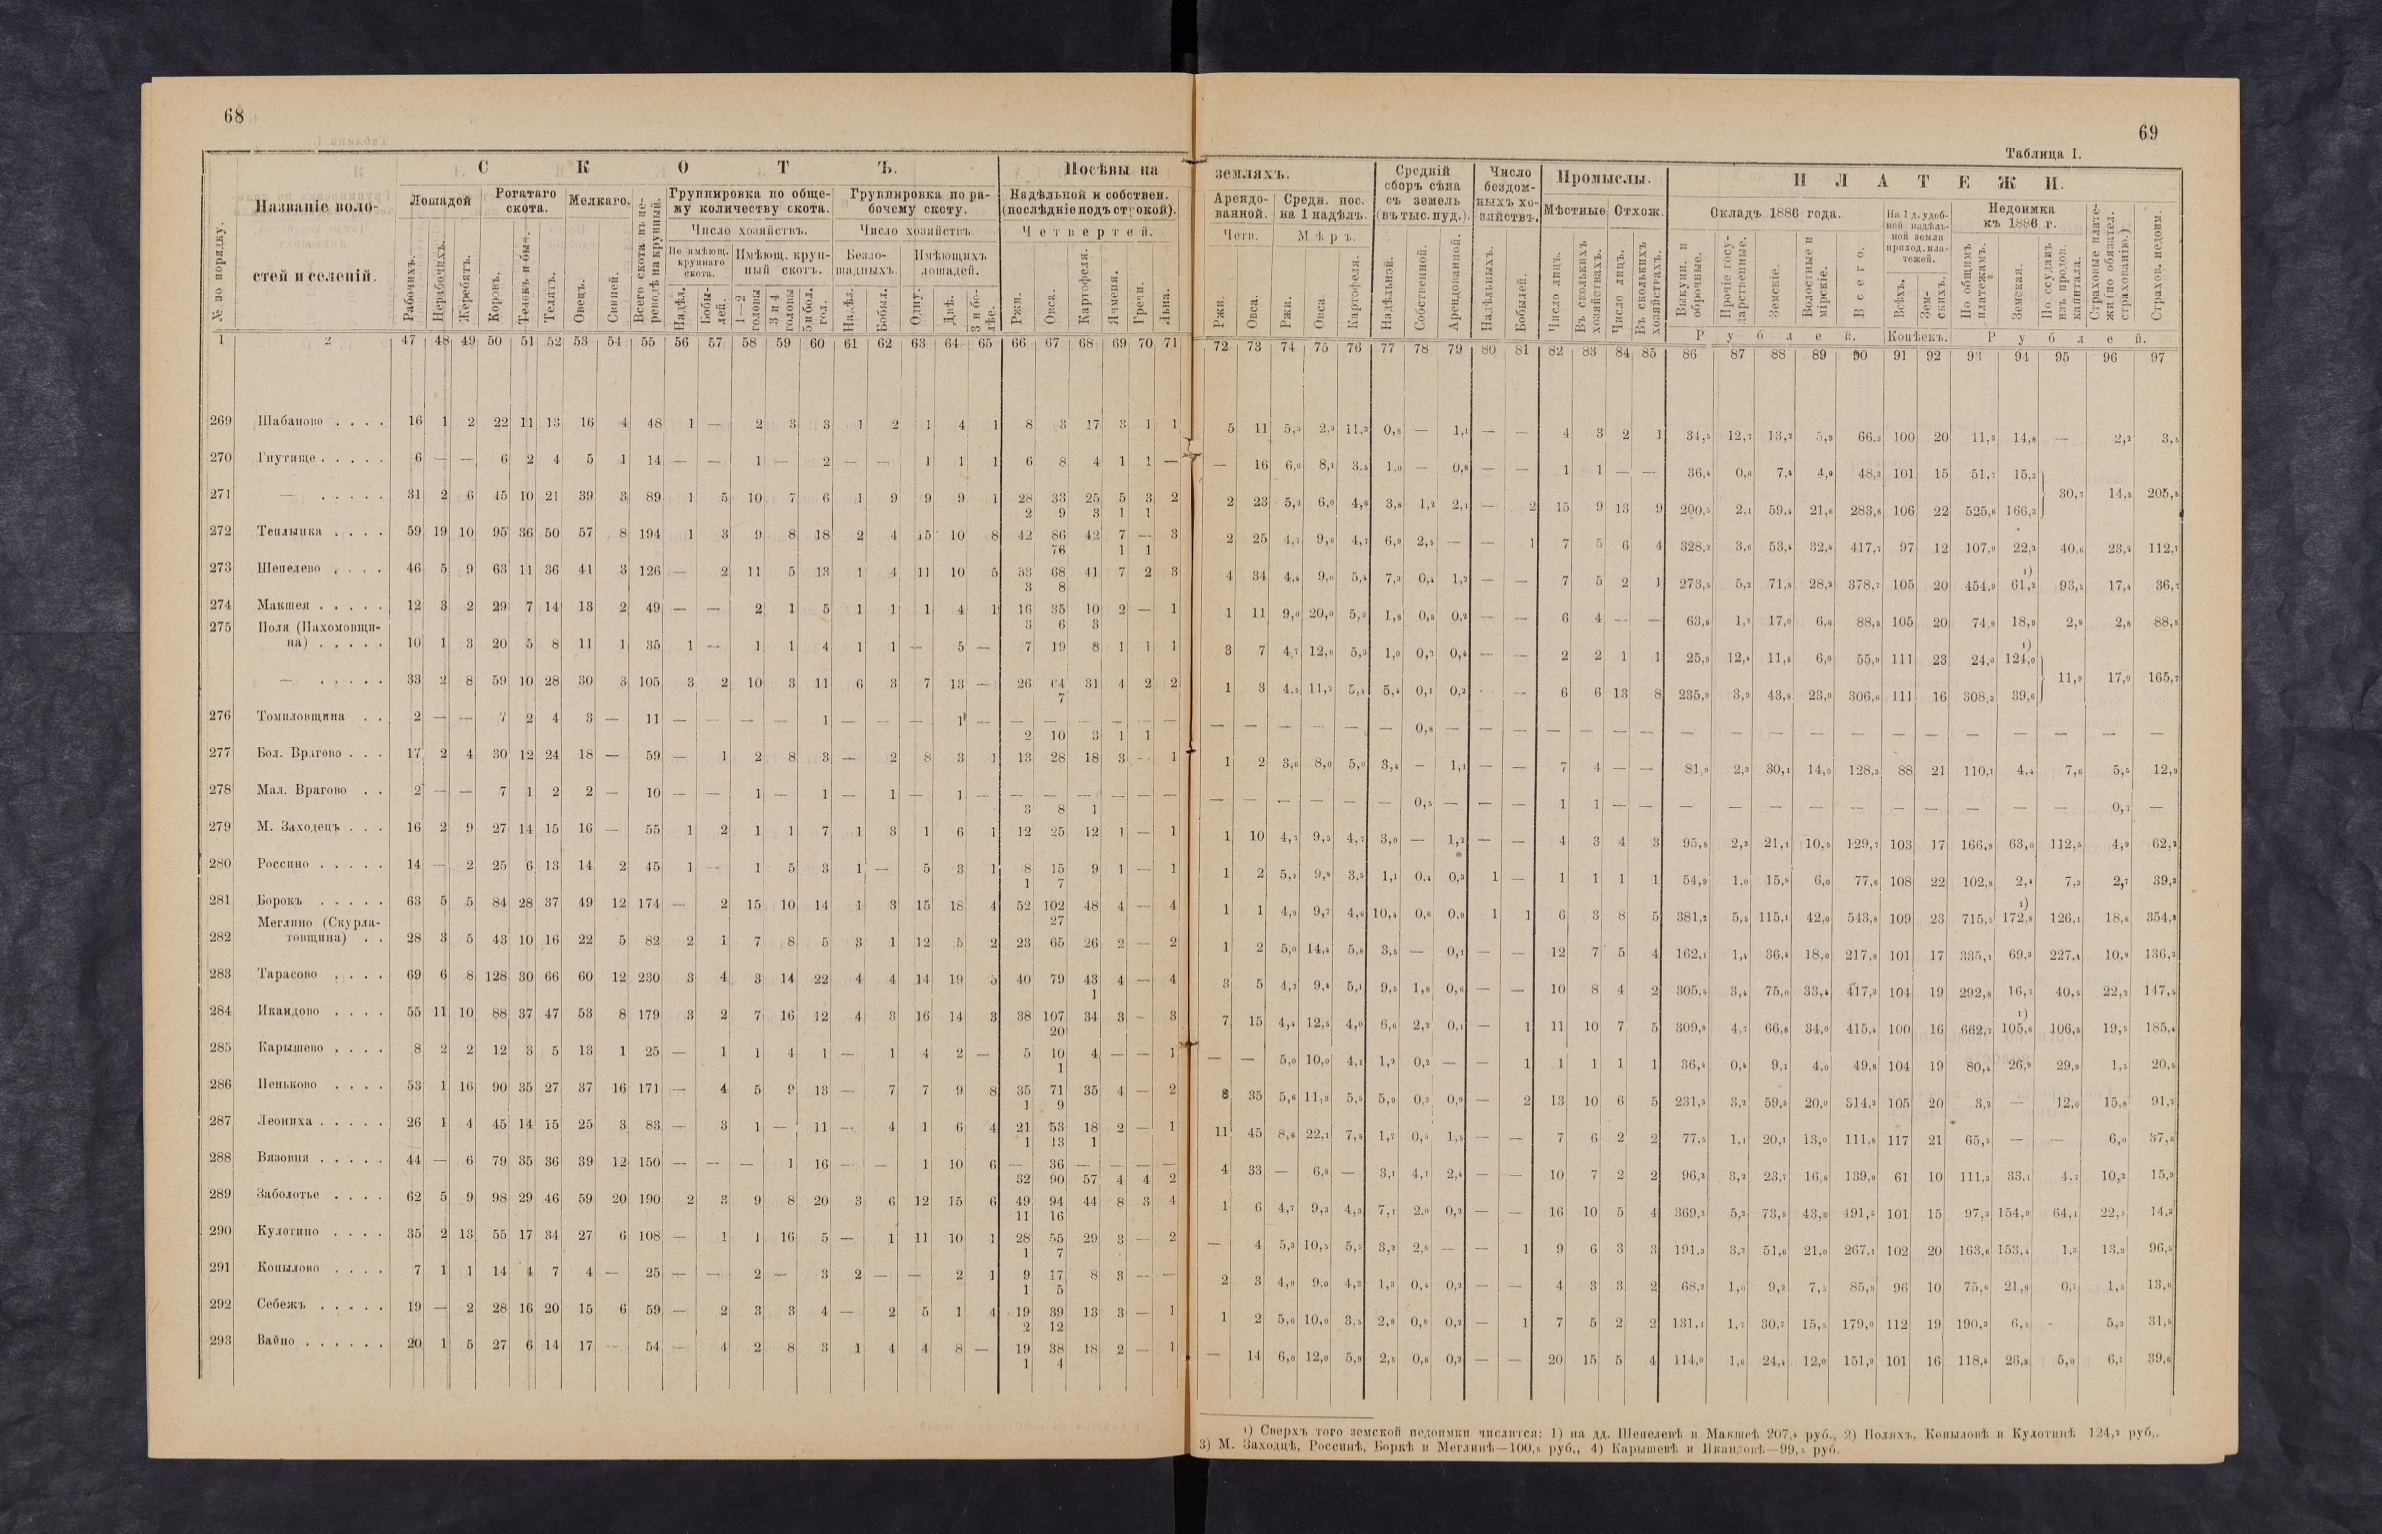 68
С К О Т Ъ.
Посѣвы на
№ по порядку.
Названіе воло-
стей и селеній.
Лошадей
Рогатаго
скота.
Мелкаго.
Группировка по обще-
му количеству скота.
Группировка по ра-
бочему скоту.
Надѣльной и собствен.
(послѣдніе подъ строкой).
Число хозяйствъ.
Число хозяйствъ.
Четвертей.
Рабочихъ.
Нерабочихъ.
Жеребятъ.
Коровъ.
Телятъ.
Овецъ.
Свиней.
Не имѣющ.
крупнаго
скота.
Имѣющ. круп-
ный скотъ.
Безло-
шадныхъ.
Имѣющихъ
лошадей.
Надѣл.
Бобы-
лей.
1—2
головы
3 и 4
головы
5 и бол.
гол.
Надѣл.
Бобыл.
Одну.
Двѣ.
3 и бо-
лѣе.
Ржи.
Овса.
Картофеля.
Ячменя.
Гречи.
Льна.
1 2 47 48 49 50 51 52 53 54 55 56 57 58 59 60 61 62 63 64 65 66 67 68 69 70 71
269 Шабаново . . . . 16 1 2 22 11 13 16 4 48 1 — 2 3 3 1 2 1 4 1 8 3 17 3 1 1
270 Гнутище . . . . . 6 — — 6 2 4 5 1 14 — — 1 — 2 — — 1 1 1 6 8 4 1 1 —
271 — . . . . . 31 2 6 45 10 21 39 3 89 1 5 10 7 6 1 9 9 9 1 28 33 25 5 3 2
2 9 3 1 1
272 Теплынка . . . . 59 19 10 95 36 50 57 8 194 1 3 9 8 18 2 4 15 10 8 42 86 42 7 — 3
76 1 1
273 Шепелево . . . . 46 5 9 63 11 36 41 3 126 — 2 11 5 13 1 4 11 10 5 53 68 41 7 2 3
3 8
274 Макшея . . . . . 12 3 2 29 7 14 13 2 49 — — 2 1 5 1 1 1 4 1 16 35 10 2 — 1
3 6 3
275 Поля (Пахомовщи-
на) . . . . . 10 1 3 20 5 8 11 1 35 1 — 1 1 4 1 1 — 5 — 7 19 8 1 1 1
— . . . . . 33 2 8 59 10 28 30 3 105 3 2 10 3 11 6 3 7 13 — 26 64 31 4 2 2
7
276 Томиловщина . . 2 — — 7 2 4 3 — 11 — — — — 1 — — — 1 — — — — — — —
2 10 3 1 1
277 Бол. Врагово . . . 17 2 4 30 12 24 18 — 59 — 1 2 8 3 — 2 8 3 1 13 28 18 3 — 1
278 Мал. Врагово . . 2 — — 7 1 2 2 — 10 — — 1 — 1 — 1 — 1 — — — — — — —
3 8 1
279 М. Заходецъ . . . 16 2 9 27 14 15 16 — 55 1 2 1 1 7 1 3 1 6 1 12 25 12 1 — 1
280 Россино . . . . . 14 — 2 25 6 13 14 2 45 1 — 1 5 3 1 — 5 3 1 8 15 9 1 — 1
1 7
281 Борокъ . . . . . 63 5 5 84 28 37 49 12 174 — 2 15 10 14 1 3 15 18 4 52 102 48 4 — 4
27
Меглино (Скурла-
282 товщина) . . 28 3 5 43 10 16 22 5 82 2 1 7 8 5 3 1 12 5 2 23 65 26 2 — 2
283 Тарасово . . . . 69 6 8 128 30 66 60 12 230 3 4 3 14 22 4 4 14 19 5 40 79 43 4 — 4
1
284 Икандово . . . . 55 11 10 88 37 47 53 8 179 3 2 7 16 12 4 3 16 14 3 38 107 34 3 — 3
20
285 Карышево . . . . 8 2 2 12 3 5 13 1 25 — 1 1 4 1 — 1 4 2 — 5 10 4 — — 1
1
286 Пеньково . . . . 53 1 16 90 35 27 37 16 171 — 4 5 9 13 — 7 7 9 8 35 71 35 4 — 2
1 9
287 Леониха . . . . . 26 1 4 45 14 15 25 3 83 — 3 1 — 11 — 4 1 6 4 21 53 18 2 — 1
1 13 1
288 Вязовня . . . . . 44 — 6 79 35 36 39 12 150 — — — 1 16 — — 1 10 6 — 36 — — — —
32 90 57 4 4 2
289 Заболотье . . . . 62 5 9 98 29 46 59 20 190 2 3 9 8 20 3 6 12 15 6 49 94 44 8 3 4
11 16
290 Кулотино . . . . 35 2 13 55 17 34 27 6 108 — 1 1 16 5 — 1 11 10 1 28 55 29 3 — 2
1 7
291 Копылово . . . . 7 1 1 14 4 7 4 — 25 — — 2 — 3 2 — — 2 1 9 17 8 3 — —
1 5
292 Себежъ . . . . . 19 — 2 28 16 20 15 6 59 — 2 3 3 4 — 2 5 1 4 19 39 13 3 — 1
2 12
293 Вайно . . . . . . 20 1 5 27 6 14 17 — 54 — 4 2 8 3 1 4 4 8 — 19 38 18 2 — 1
1 4
69
Таблица I.
земляхъ.
Средній
сборъ сѣна
съ земель
(въ тыс. пуд.).
Число
бездом-
ныхъ хо-
зяйствъ.
Промыслы.
П Л А Т Е Ж И.
Арендо-
ванной.
Средн. пос.
на 1 надѣлъ.
Мѣстные
Отхож.
Окладъ 1886 года.
На 1 д. удоб-
ной надѣль-
ной земли
приход. пла-
тежей.
Недоимка
къ 1886 г.
Четв.
Мѣръ.
Ржи.
Овса.
Ржи.
Овса.
Картофеля.
Надѣльной.
Собственной.
Арендованной.
Надѣльныхъ.
Бобылей.
Число лицъ.
Въ сколькихъ
хозяйствахъ.
Число лицъ.
Въ сколькихъ
хозяйствахъ.
Выкупн. и
оброчные.
Прочіе госу-
дарственные.
Земскіе.
Волостные и
мірскіе.
Всего.
Всѣхъ.
Зем-
скихъ.
По общимъ
платежамъ.
Земская.
По ссудамъ
изъ продов.
капитала.
Страховые плате-
жи (по обязател.
страхованію.)
Страхов. недоим.
Рублей.
Копѣекъ.
Рублей.
72 73 74 75 76 77 78 79 80 81 82 83 84 85 86 87 88 89 90 91 92 93 94 95 96 97
5 11 5,3 2,3 11,3 0,8 — 1,1 — — 4 3 2 1 34,5 12,7 13,2 5,9 66,3 100 20 11,3 14,8 — 2,2 3,5
— 16 6,0 8,1 3,5 1,0 — 0,8 — — 1 1 — — 36,4 0,6 7,4 4,0 48,3 101 15 51,7 15,3
30,7 14,5 205,5
2 23 5,2 6,0 4,6 3,8 1,2 2,1 — 2 15 9 13 9 200,5 2,1 59,4 21,6 283,6 106 22 525,6 166,3
2 25 4,7 9,6 4,7 6,9 2,5 — — 1 7 5 6 4 328,2 3,6 53,4 32,4 417,7 97 12 107,0 22,2 40,6 23,2 112,7
¹)
4 34 4,4 9,0 5,4 7,3 0,4 1,2 — — 7 5 2 1 273,5 5,2 71,8 28,2 378,7 105 20 454,9 61,2 93,5 17,4 36,7
1 11 9,0 20,0 5,9 1,8 0,5 0,2 — — 6 4 — — 63,8 1,2 17,0 6,6 88,5 105 20 74,9 18,9 2,8 2,8 88,5
¹)
3 7 4,7 12,6 5,3 1,0 0,2 0,4 — — 2 2 1 1 25,9 12,4 11,5 6,0 55,9 111 23 24,0 124,0
11,9 17,0 165,7
1 3 4,5 11,2 5,4 5,4 0,1 0,2 — — 6 6 13 8 235,9 3,9 43,8 23,0 306,6 111 16 308,3 39,6
— — — — — — 0,8 — — — — — — — — — — — — — — — — — — —
1 2 3,6 8,0 5,0 3,4 — 1,1 — — 7 4 — — 81,9 2,3 30,1 14,0 128,3 88 21 110,1 4,4 7,6 5,5 12,9
— — — — — — 0,5 — — — 1 1 — — — — — — — — — — — — 0,7 —
1 10 4,7 9,5 4,7 3,0 — 1,2 — — 4 3 4 3 95,8 2,3 21,1 10,5 129,7 103 17 166,9 63,0 112,5 4,9 62,2
1 2 5,5 9,8 3,5 1,1 0,4 0,3 1 — 1 1 1 1 54,9 1,0 15,8 6,0 77,6 108 22 102,8 2,4 7,3 2,7 39,3
¹)
1 1 4,9 9,7 4,6 10,4 0,6 0,9 1 1 6 3 8 5 381,2 5,5 115,1 42,0 543,8 109 23 715,5 172,8 126,1 18,6 354,3
1 2 5,0 14,4 5,8 3,5 — 0,1 — — 12 7 5 4 162,1 1,4 36,4 18,0 217,8 101 17 335,1 69,3 227,4 10,9 136,3
3 5 4,7 9,4 5,1 9,5 1,8 0,6 — — 10 8 4 2 305,5 3,4 75,0 33,4 417,3 104 19 292,8 16,7 40,5 22,2 147,5
¹)
7 15 4,4 12,5 4,0 6,6 2,2 0,1 — 1 11 10 7 5 309,8 4,7 66,8 34,0 415,4 100 16 662,7 105,6 106,5 19,5 185,4
— — 5,0 10,0 4,1 1,2 0,2 — — 1 1 1 1 1 36,4 0,4 9,1 4,0 49,8 104 19 80,4 26,9 29,9 1,5 20,5
8 35 5,6 11,3 5,5 5,9 0,3 0,9 — 2 13 10 6 5 231,5 3,2 59,5 20,0 314,2 105 20 3,2 — 12,0 15,8 91,2
11 45 8,6 22,1 7,5 1,7 0,5 1,5 — — 7 6 2 2 77,5 1,1 20,1 13,0 111,8 117 21 65,5 — — 6,0 37,6
4 33 — 6,8 — 3,1 4,1 2,4 — — 10 7 2 2 96,2 3,2 23,7 16,8 139,9 61 10 111,3 33,1 4,7 10,2 15,3
1 6 4,7 9,3 4,3 7,1 2,0 0,2 — — 16 10 5 4 369,2 5,2 73,5 43,6 491,5 101 15 97,3 154,9 64,1 22,5 14,3
— 4 5,3 10,5 5,5 3,2 2,8 — — 1 9 6 3 3 191,3 3,2 51,6 21,0 267,1 102 20 163,6 153,4 1,3 13,9 96,5
2 3 4,9 9,0 4,3 1,3 0,4 0,2 — — 4 3 3 2 68,2 1,0 9,2 7,5 85,9 96 10 75,6 21,9 0,7 1,5 13,6
1 2 5,0 10,0 3,5 2,8 0,8 0,2 — 1 7 5 2 2 131,1 1,7 30,7 15,5 179,0 112 19 190,3 6,5 - 5,3 31,5
— 14 6,0 12,0 5,9 2,5 0,6 0,2 — — 20 15 5 4 114,0 1,6 24,4 12,0 151,9 101 16 118,8 26,3 5,0 6,1 39,6
¹) Сверхъ того земской недоимки числится: 1) на дд. Шепелевѣ и Макшеѣ 207,4 руб., 2) Поляхъ, Копыловѣ и Кулотинѣ 124,2 руб.,
3) М. Заходцѣ, Россинѣ, Боркѣ и Меглинѣ—100,8 руб., 4) Карышевѣ и Икандовѣ—99,5 руб.